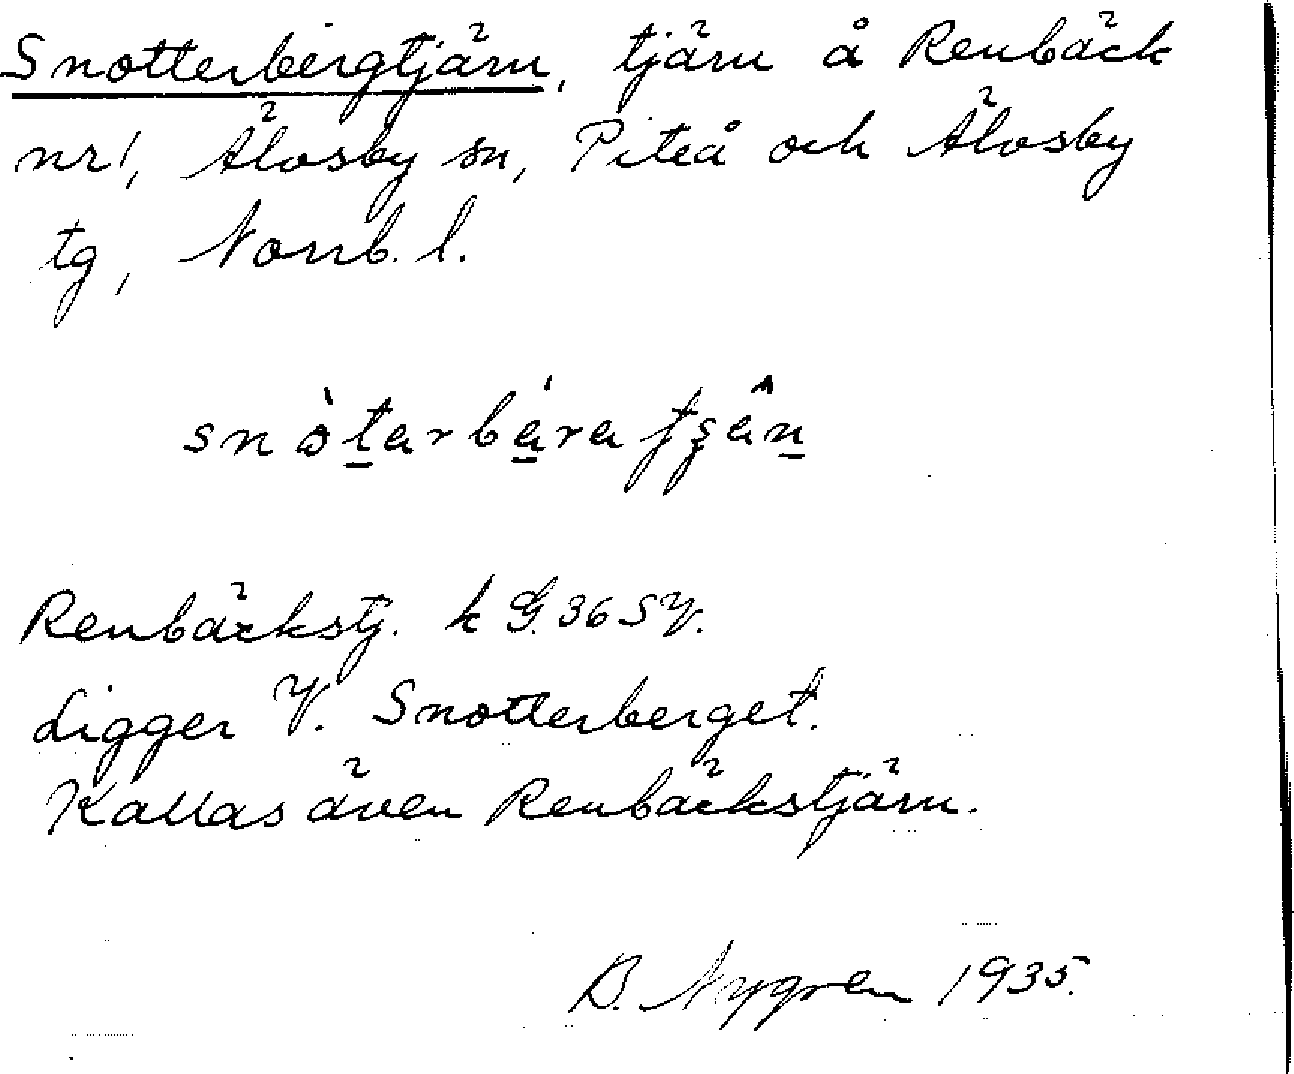 Snotterbergtjärn, tjärn å Renbäck
nr 1, Älvsby sn, Piteå och Älvsby
tg, Norrb. l.
Renbäckstj. k G. 36 SV.
Ligger V. Snotterberget.
Kallas även Renbäckstjärn.
B. Nygren 1935.